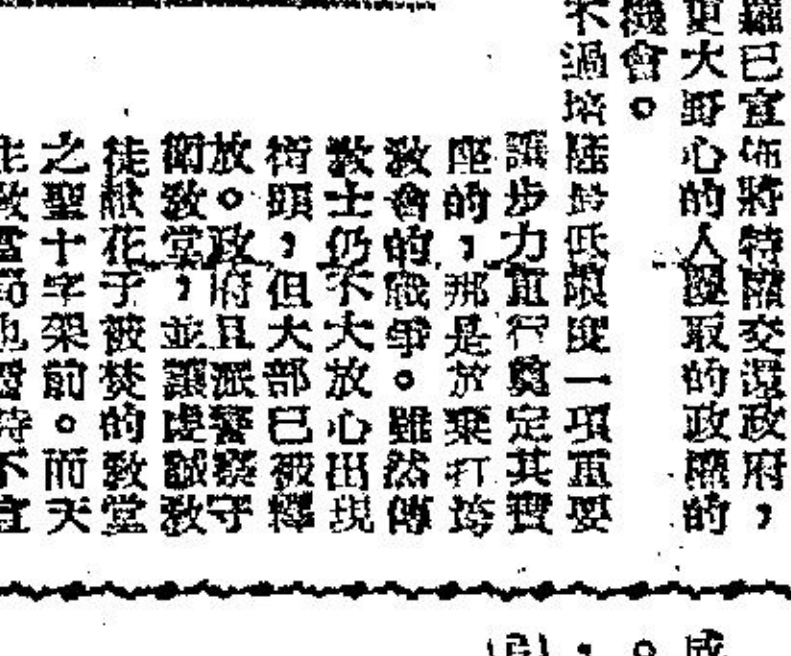 已宣佈將特權交還政府，
更大野心的人攫取的政權的
機會。
不過培隆最低限度一項重要
讓步力重行奠定其寶
座的，那是放棄打垮
教會的戰爭。雖然傳
教士仍不大放心出現
街頭，但大部已被釋
放。政府且派警察守
衛教堂，並讓虔誠教
徒獻花于被焚的教堂
之聖十字架前。而天
主教當局也暫時不宣